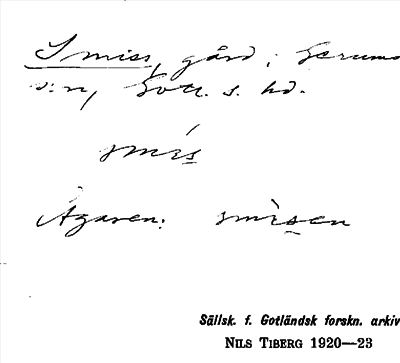 Smiss, gård i Gerums
s:n, Gotl. s. hd.
smis
Ägaren: smisen
Sällsk. f. Gotländsk forskn. arkiv
NILS TIBERG 1920—23